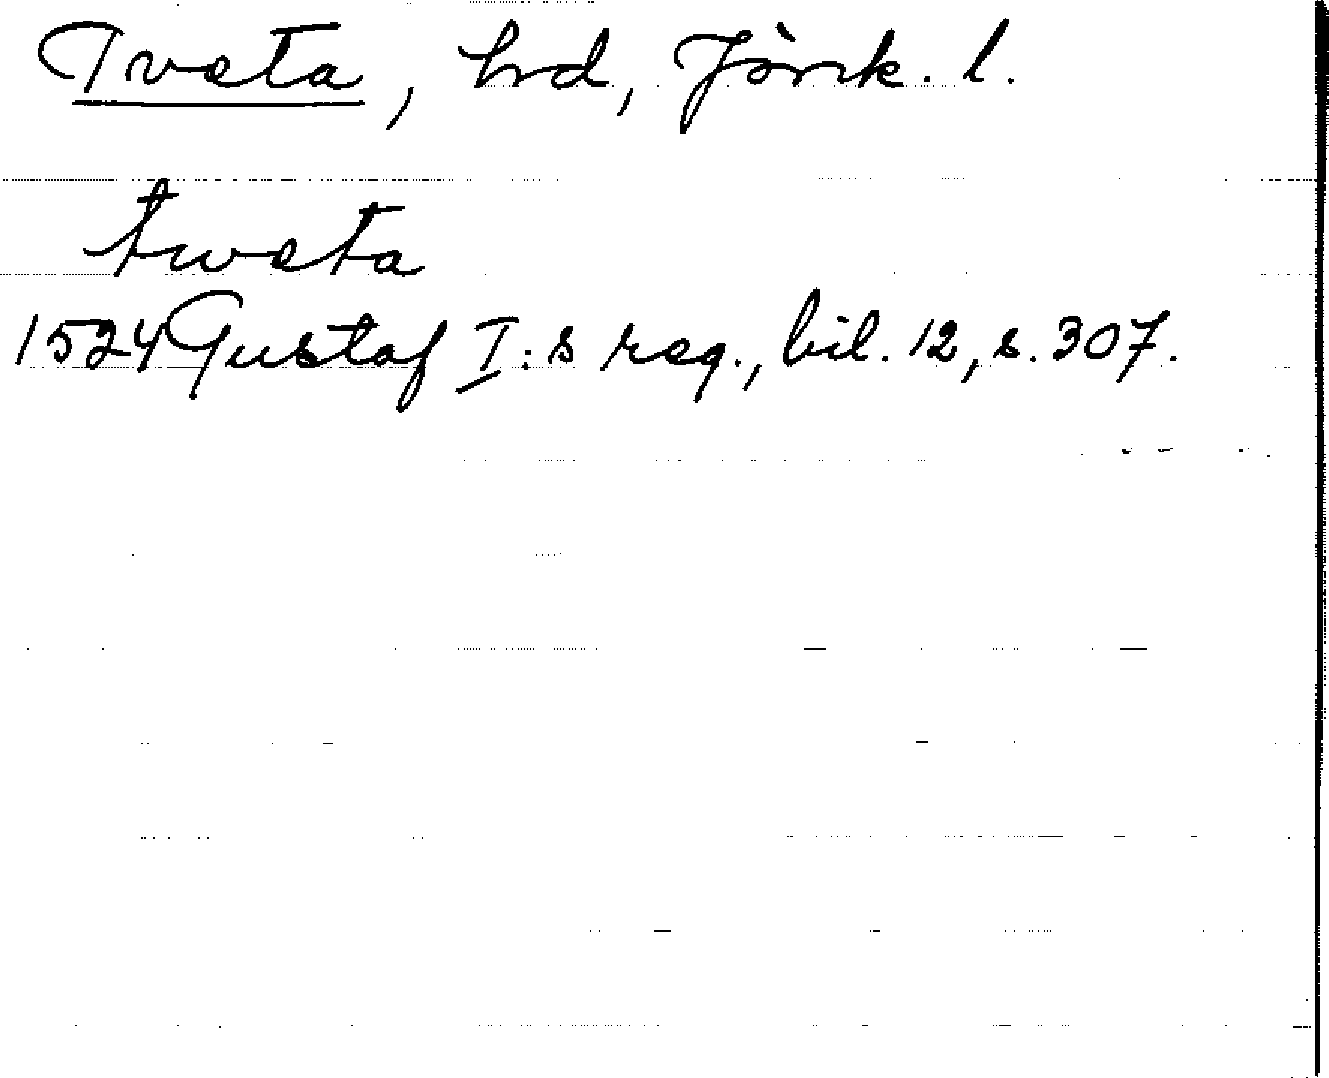 Tveta, hd, Jönk. l.
tweta
1524 Gustaf I:s reg., bil. 12, s. 307.